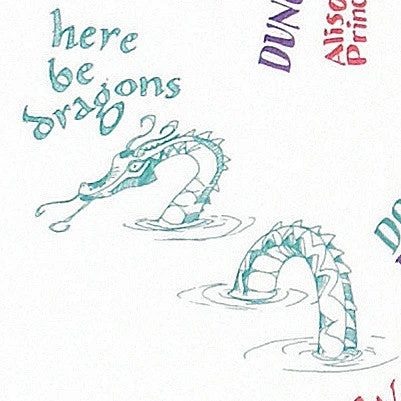 here
be
dragons
DUN
Aliso
Princ